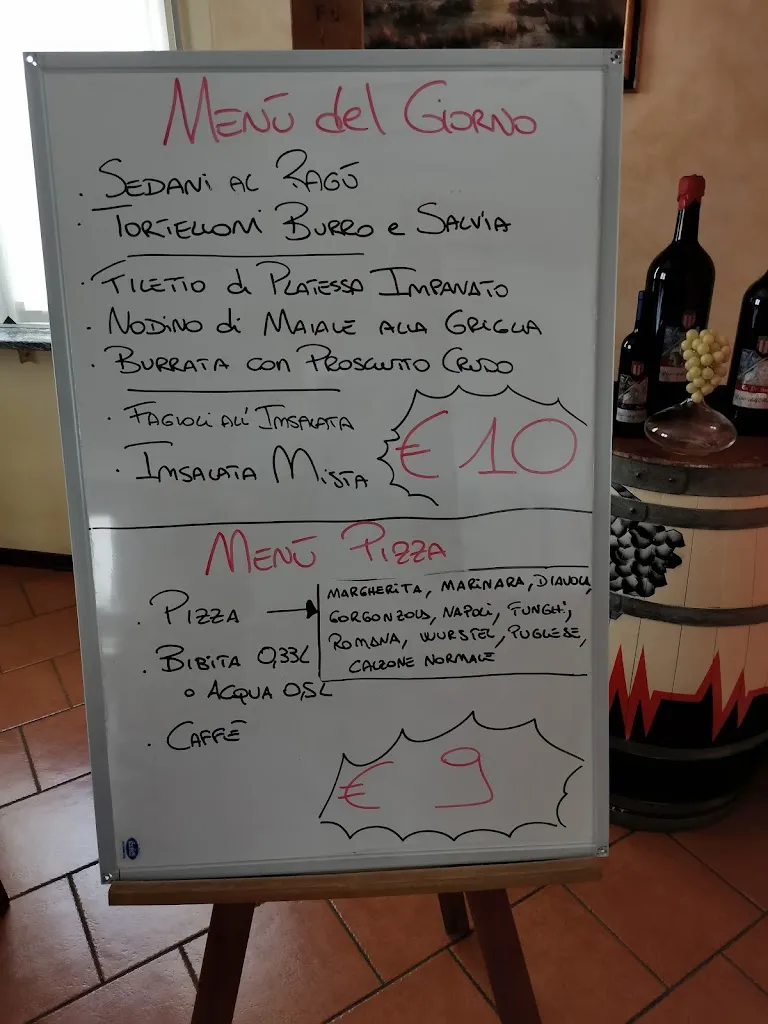 MENÙ del GIORNO
. SEDANI AL RAGÙ
. TORTELLONI BURRO e SALVIA
. FILETTO di PLATESSA IMPANATO
. NODINO di MAIALE ALLA GRIGLIA
. BURRATA con PROSCIUTTO CRUDO
. FAGIOLI ALL' INSALATA
. INSALATA MISTA
€ 10
MENÙ PIZZA
. PIZZA → MARGHERITA, MARINARA, DIAVOLA,
GORGONZOLA, NAPOLI, FUNGHI,
ROMANA, WURSTEL, PUGLIESE,
CALZONE NORMALE
. BIBITA 0,33L
o ACQUA 0,5L
. CAFFÈ
€ 9